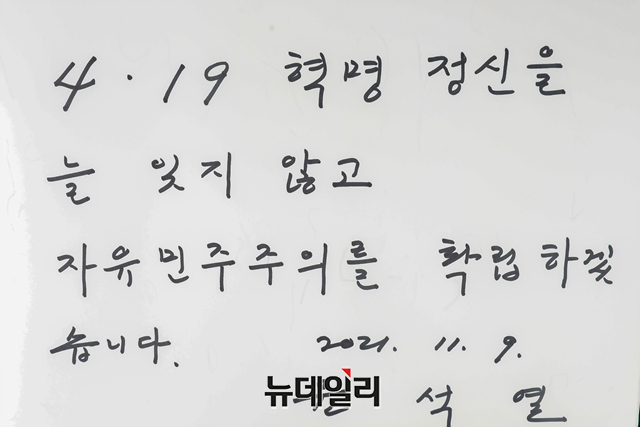 4·19 혁명 정신을
늘 잊지 않고
자유민주주의를 확립하겠
습니다. 2021. 11. 9.
뉴데일리
석 열